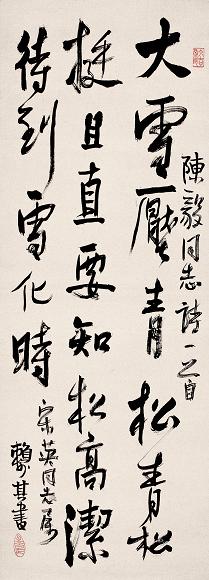 陳毅同志詩一首
大雪壓青松青松
挺且直要知松高潔
待到雪化時
宋英同志屬
賴少其書